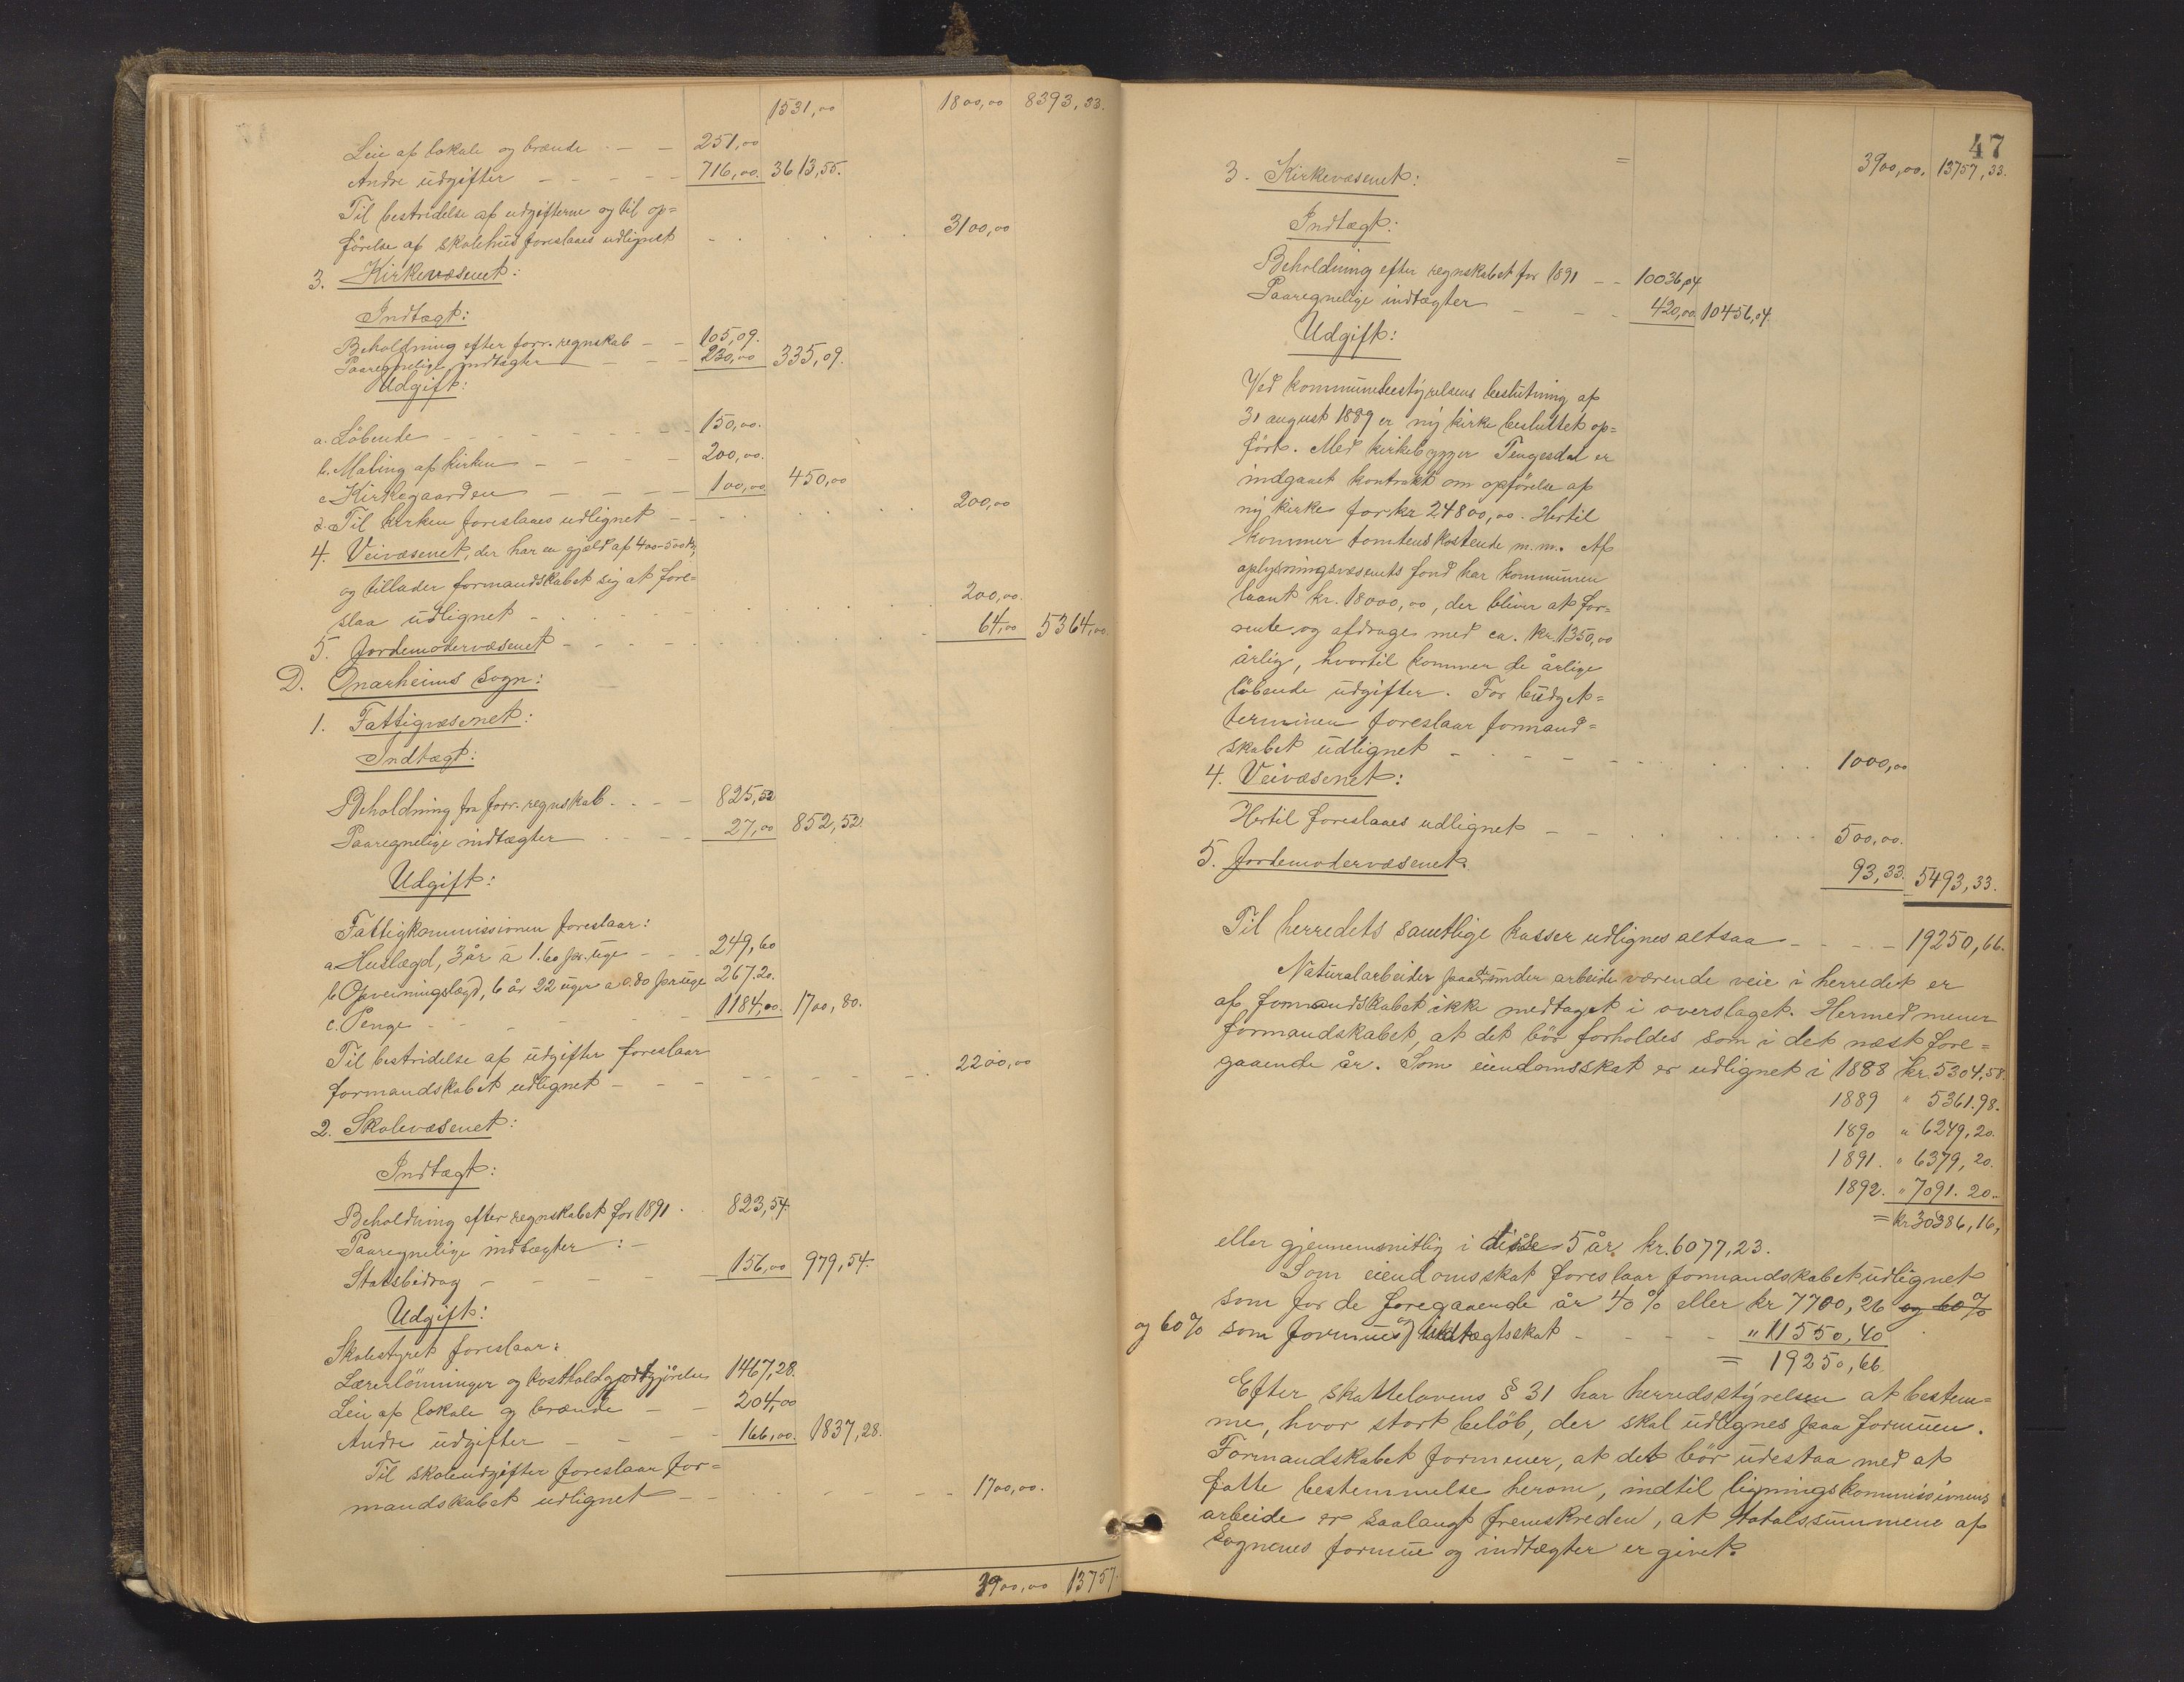 1531,00 1800,00 8393,33.
Leie af lokale og brænde - - 251,00
Andre udgifter - - - - - 716,00. 3613,55.
Til bestridelse af udgifterne og til op=
förelse af skolehus foreslaaes udlignet - . . . . . 3100,00
3. Kirkevæsenet:
Indtægt:
Beholdning efter forr. regnskab - - 105,09.
Paaregnelige indtægter - - 230,00 335,09.
Udgift:
a. Löbende - - - - - - - - 150,00.
b. Maling af kirken - - - - - 200,00.
c Kirkegaarden - - - - - 100,00 450,00
d. Til kirken foreslaaes udlignet - - . . . . . 200,00
4. Veivæsenet, der har en gjæld af 400-500 kr,
og tillader formandskabet sig at fore=
slaa udlignet - . . - - . . . . . 200,00.
5. Jordemodervæsenet - - - - - . . . . . 64,00 5364,00.
D. Onarheims sogn:
1. Fattigvæsenet:
Indtægt:
Beholdning fra forr. regnskab. - - - 825,52
Paaregnelige indtægter - - - 27,00 852,52.
Udgift:
Fattigkommissionen foreslaar:
a. Huslægd, 3 år à 1.60 pr. uge - - - 249,60
b. Opveiningslægd, 6 år 22 uger a 0.80 pr uge 267.20.
c. Penge - - - - - - - 1184,00. 1700,80.
Til bestridelse af udgifter foreslaar
formandskabet udlignet - - - - - - - - - 2200,00
2. Skolevæsenet:
Indtægt:
Beholdning efter regnskabet for 1891 . 823,54
Paaregnelige indtægter : -
Statsbidrag - - - - - 156,00 979,54.
Udgift:
Skolestyret foreslaar:
Lærerlönninger og kostholdgodtgjörelse 1467,28.
Leie af lokale og brænde - - 204,00
Andre udgifter - - - - 166,00. 1837,28.
Til skoleudgifter foreslaar for=
mandskabet udlignet - - . . - - - - 1700,00.
3900,00 13757.
47
3900,00. 13757,33.
3. Kirkevæsenet:
Indtægt:
Beholdning efter regnskabet for 1891 - - 10036,04
Paaregnelige indtægter - - - 420,00. 10456,04.
Udgift:
Ved kommunebestyrelsens beslutning af
31 august 1889 er ny kirke besluttet op=
fört. Med kirkebygger Tengesdal er
indgaaet kontrakt om opförelse af
ny kirke for kr 24800,00. Hertil
kommer tomtens kostende m.m. Af
oplysningsvæsenets fond har kommunen
laant kr. 18000,00, der bliver at for=
rente og afdrage med ca. kr. 1350,00
årlig, hvortil kommer de årlige
löbende udgifter. For budget=
terminen foreslaar formand=
skabet udlignet - . - - - . . . . . 1000,00
4. Veivæsenet:
Hertil foreslaaes udlignet - - . . . . . . 500,00.
5. Jordemodervæsenet. 93,33. 5493,33.
Til herredets samtlige kasser udlignes altsaa - - - - 19250,66.
Naturalarbeider paa de under arbeide værende veie i herredet er
af formandskabet ikke medtaget i overslaget. Hermed mener
formandskabet, at det bör forholdes som i det næst fore=
gaaende år. Som eiendomsskat er udlignet i 1888 kr. 5304,58.
1889 " 5361.98.
1890 " 6249,20.
1891. " 6379,20.
1892. " 7091.20.
= kr 30386,16,
eller gjennemsnitlig i disse 5 år kr. 6077,23.
Som eiendomsskat foreslaar formandskabet udlignet
som for de foregaaende år 40% eller kr 7700,26 og 60%
og 60% som formues og indtægtsskat - - - - - " 11550,40
= 19250,66
Efter skattelovens § 31 har herredsstyrelsen at bestem=
me, hvor stort belöb, der skal udlignes paa formuen.
Formandskabet formener, at det bör udestaa med at
fatte bestemmelse herom, indtil ligningskommissionens
arbeide er saalangt fremskreden, at totalssummene af
sognenes formue og indtægter er givet.